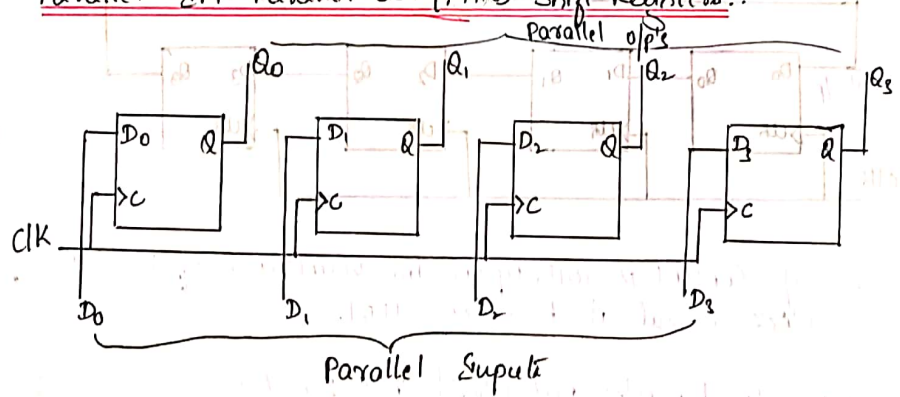 Parallel o/p's
Q0 Q1 Q2 Q3
D0 Q D1 Q D2 Q D3 Q
>C >C >C >C
ClK
D0 D1 D2 D3
Parallel Inputs